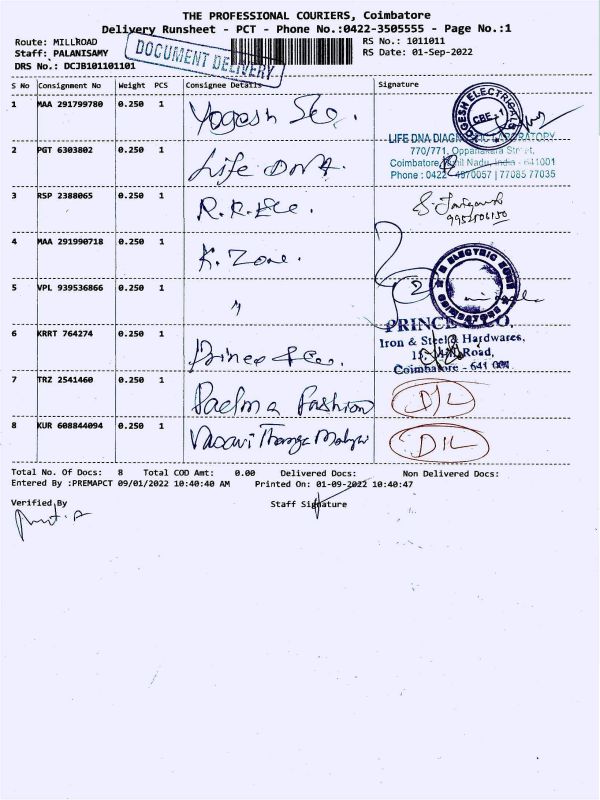 THE PROFESSIONAL COURIERS, Coimbatore
Delivery Runsheet - PCT - Phone No.:0422-3505555 - Page No.:1
Route: MILLROAD RS No.: 1011011
Staff: PALANISAMY RS Date: 01-Sep-2022
DRS No.: DCJB101101101
DOCUMENT DELIVERY
S No Consignment No Weight PCS Consignee Details Signature
1 MAA 291799780 0.250 1 Yogesh
CBE-1
2 PGT 6303802 0.250 1 Life DNA
LIFE DNA DIAGNOSTIC LABORATORY
770/771, Oppanakara Street,
Coimbatore, Tamil Nadu, India - 641001
Phone : 0422 4970057 | 77085 77035
3 RSP 2388065 0.250 1 R.R. Ele.
4 MAA 291990718 0.250 1 K. Zone.
5 VPL 939536866 0.250 1 "
ELECTRIC COIMBATORE
6 KRRT 764274 0.250 1 Prince & Co.
PRINCE & CO.
Iron & Steel & Hardwares,
Mill Road,
Coimbatore - 641 001
7 TRZ 2541460 0.250 1 Padma Fashion D/L
8 KUR 608844094 0.250 1 Vasavi Thanga D/L
Total No. Of Docs: 8 Total COD Amt: 0.00 Delivered Docs: Non Delivered Docs:
Entered By :PREMAPCT 09/01/2022 10:40:40 AM Printed On: 01-09-2022 10:40:47
Verified By Staff Signature